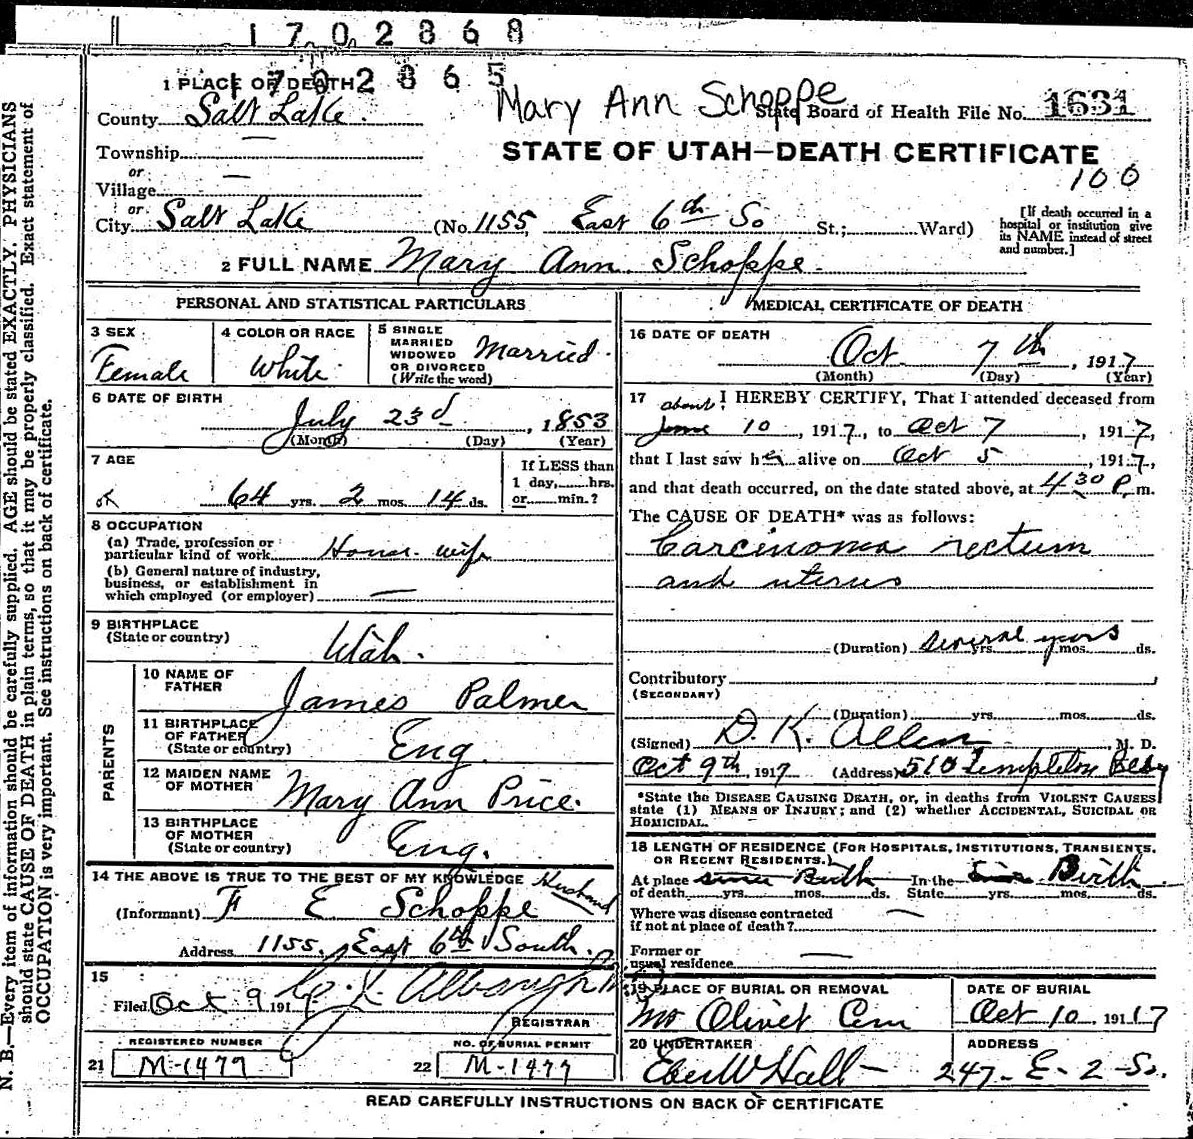 1702868
1 PLACE OF DEATH 1702865
Mary Ann Schoppe
State Board of Health File No. 1631
County Salt Lake.
STATE OF UTAH—DEATH CERTIFICATE
100
Township —
or
Village —
or
City Salt Lake (No. 1155, East 6th So St.; Ward)
[If death occurred in a hospital or institution give its NAME instead of street and number.]
2 FULL NAME Mary Ann Schoppe.
PERSONAL AND STATISTICAL PARTICULARS
3 SEX Female
4 COLOR OR RACE White
5 SINGLE MARRIED WIDOWED OR DIVORCED (Write the word) Married.
6 DATE OF BIRTH
July 23d, 1853
(Month) (Day) (Year)
7 AGE
64 yrs. 2 mos. 14 ds.
If LESS than 1 day, hrs. or min.?
8 OCCUPATION
(a) Trade, profession or particular kind of work House-wife
(b) General nature of industry, business, or establishment in which employed (or employer) —
9 BIRTHPLACE
(State or country) Utah.
PARENTS
10 NAME OF FATHER James Palmer
11 BIRTHPLACE OF FATHER (State or country) Eng.
12 MAIDEN NAME OF MOTHER Mary Ann Price.
13 BIRTHPLACE OF MOTHER (State or country) Eng.
14 THE ABOVE IS TRUE TO THE BEST OF MY KNOWLEDGE Husband
(Informant) F E Schoppe
Address 1155. East 6th South.
15
Filed Oct 9 191
REGISTRAR
REGISTERED NUMBER
21 M-1477
NO. OF BURIAL PERMIT
22 M-1477
MEDICAL CERTIFICATE OF DEATH
16 DATE OF DEATH
Oct 7th, 1917
(Month) (Day) (Year)
17 about I HEREBY CERTIFY, That I attended deceased from
June 10, 1917, to Oct 7, 1917,
that I last saw her alive on Oct 5, 1917,
and that death occurred, on the date stated above, at 4 30 P. m.
The CAUSE OF DEATH* was as follows:
Carcinoma rectum
and uterus
(Duration) several years yrs. mos. ds.
Contributory
(SECONDARY)
(Duration) yrs. mos. ds.
(Signed) D. K. Allen, M. D.
Oct 9th, 1917 (Address) 510 Templeton Bldg
*State the DISEASE CAUSING DEATH, or, in deaths from VIOLENT CAUSES state (1) MEANS OF INJURY; and (2) whether ACCIDENTAL, SUICIDAL OR HOMICIDAL.
18 LENGTH OF RESIDENCE (FOR HOSPITALS, INSTITUTIONS, TRANSIENTS, OR RECENT RESIDENTS.)
At place of death since Birth yrs. mos. ds. In the State Since Birth yrs. mos. ds.
Where was disease contracted
if not at place of death? —
Former or
usual residence —
19 PLACE OF BURIAL OR REMOVAL
Mt Olivet Cem
DATE OF BURIAL
Oct 10, 19117
20 UNDERTAKER
Eber W Hall
ADDRESS
247- E- 2- So.
READ CAREFULLY INSTRUCTIONS ON BACK OF CERTIFICATE
N. B.—Every item of information should be carefully supplied. AGE should be stated EXACTLY. PHYSICIANS
should state CAUSE OF DEATH in plain terms, so that it may be properly classified. Exact statement of
OCCUPATION is very important. See instructions on back of certificate.